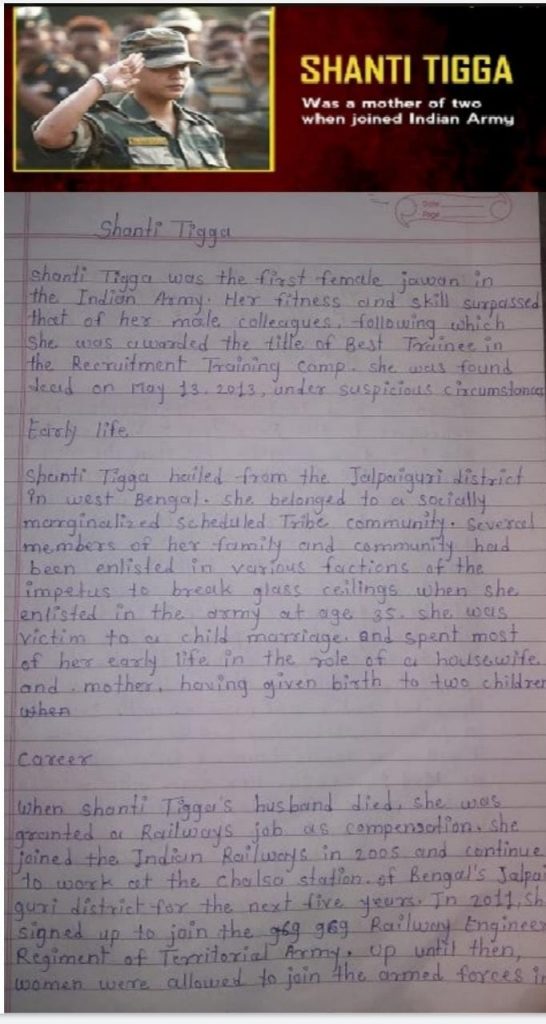 SHANTI TIGGA
Was a mother of two
when joined Indian Army
Date
Page
Shanti Tigga
Shanti Tigga was the first female jawan in
the Indian Army. Her fitness and skill surpassed
that of her male colleagues, following which
She was awarded the title of Best Trainee in
the Recruitment Training Camp. she was found
dead on May 13. 2013, under suspicious circumstances
Early life
Shanti Tigga hailed from the Jalpaiguri district
in west Bengal. she belonged to a socially
marginalized Scheduled Tribe community. Several
members of her family and community had
been enlisted in various factions of the
impetus to break glass ceilings when she
enlisted in the army at age 35. she was
victim to a child marriage. and spent most
of her early life in the role of a housewife.
and mother, having given birth to two children
when
Career
When shanti Tigga's husband died, she was
granted a Railways job as compensation. she
joined the Indian Railways in 2005 and continue
to work at the Chalsa station of Bengal's Jalpai
guri district for the next five years. In 2011, sh
signed up to join the 969 969 Railway Engineer
Regiment of Territorial Army. up until then,
women were allowed to join the armed forces in